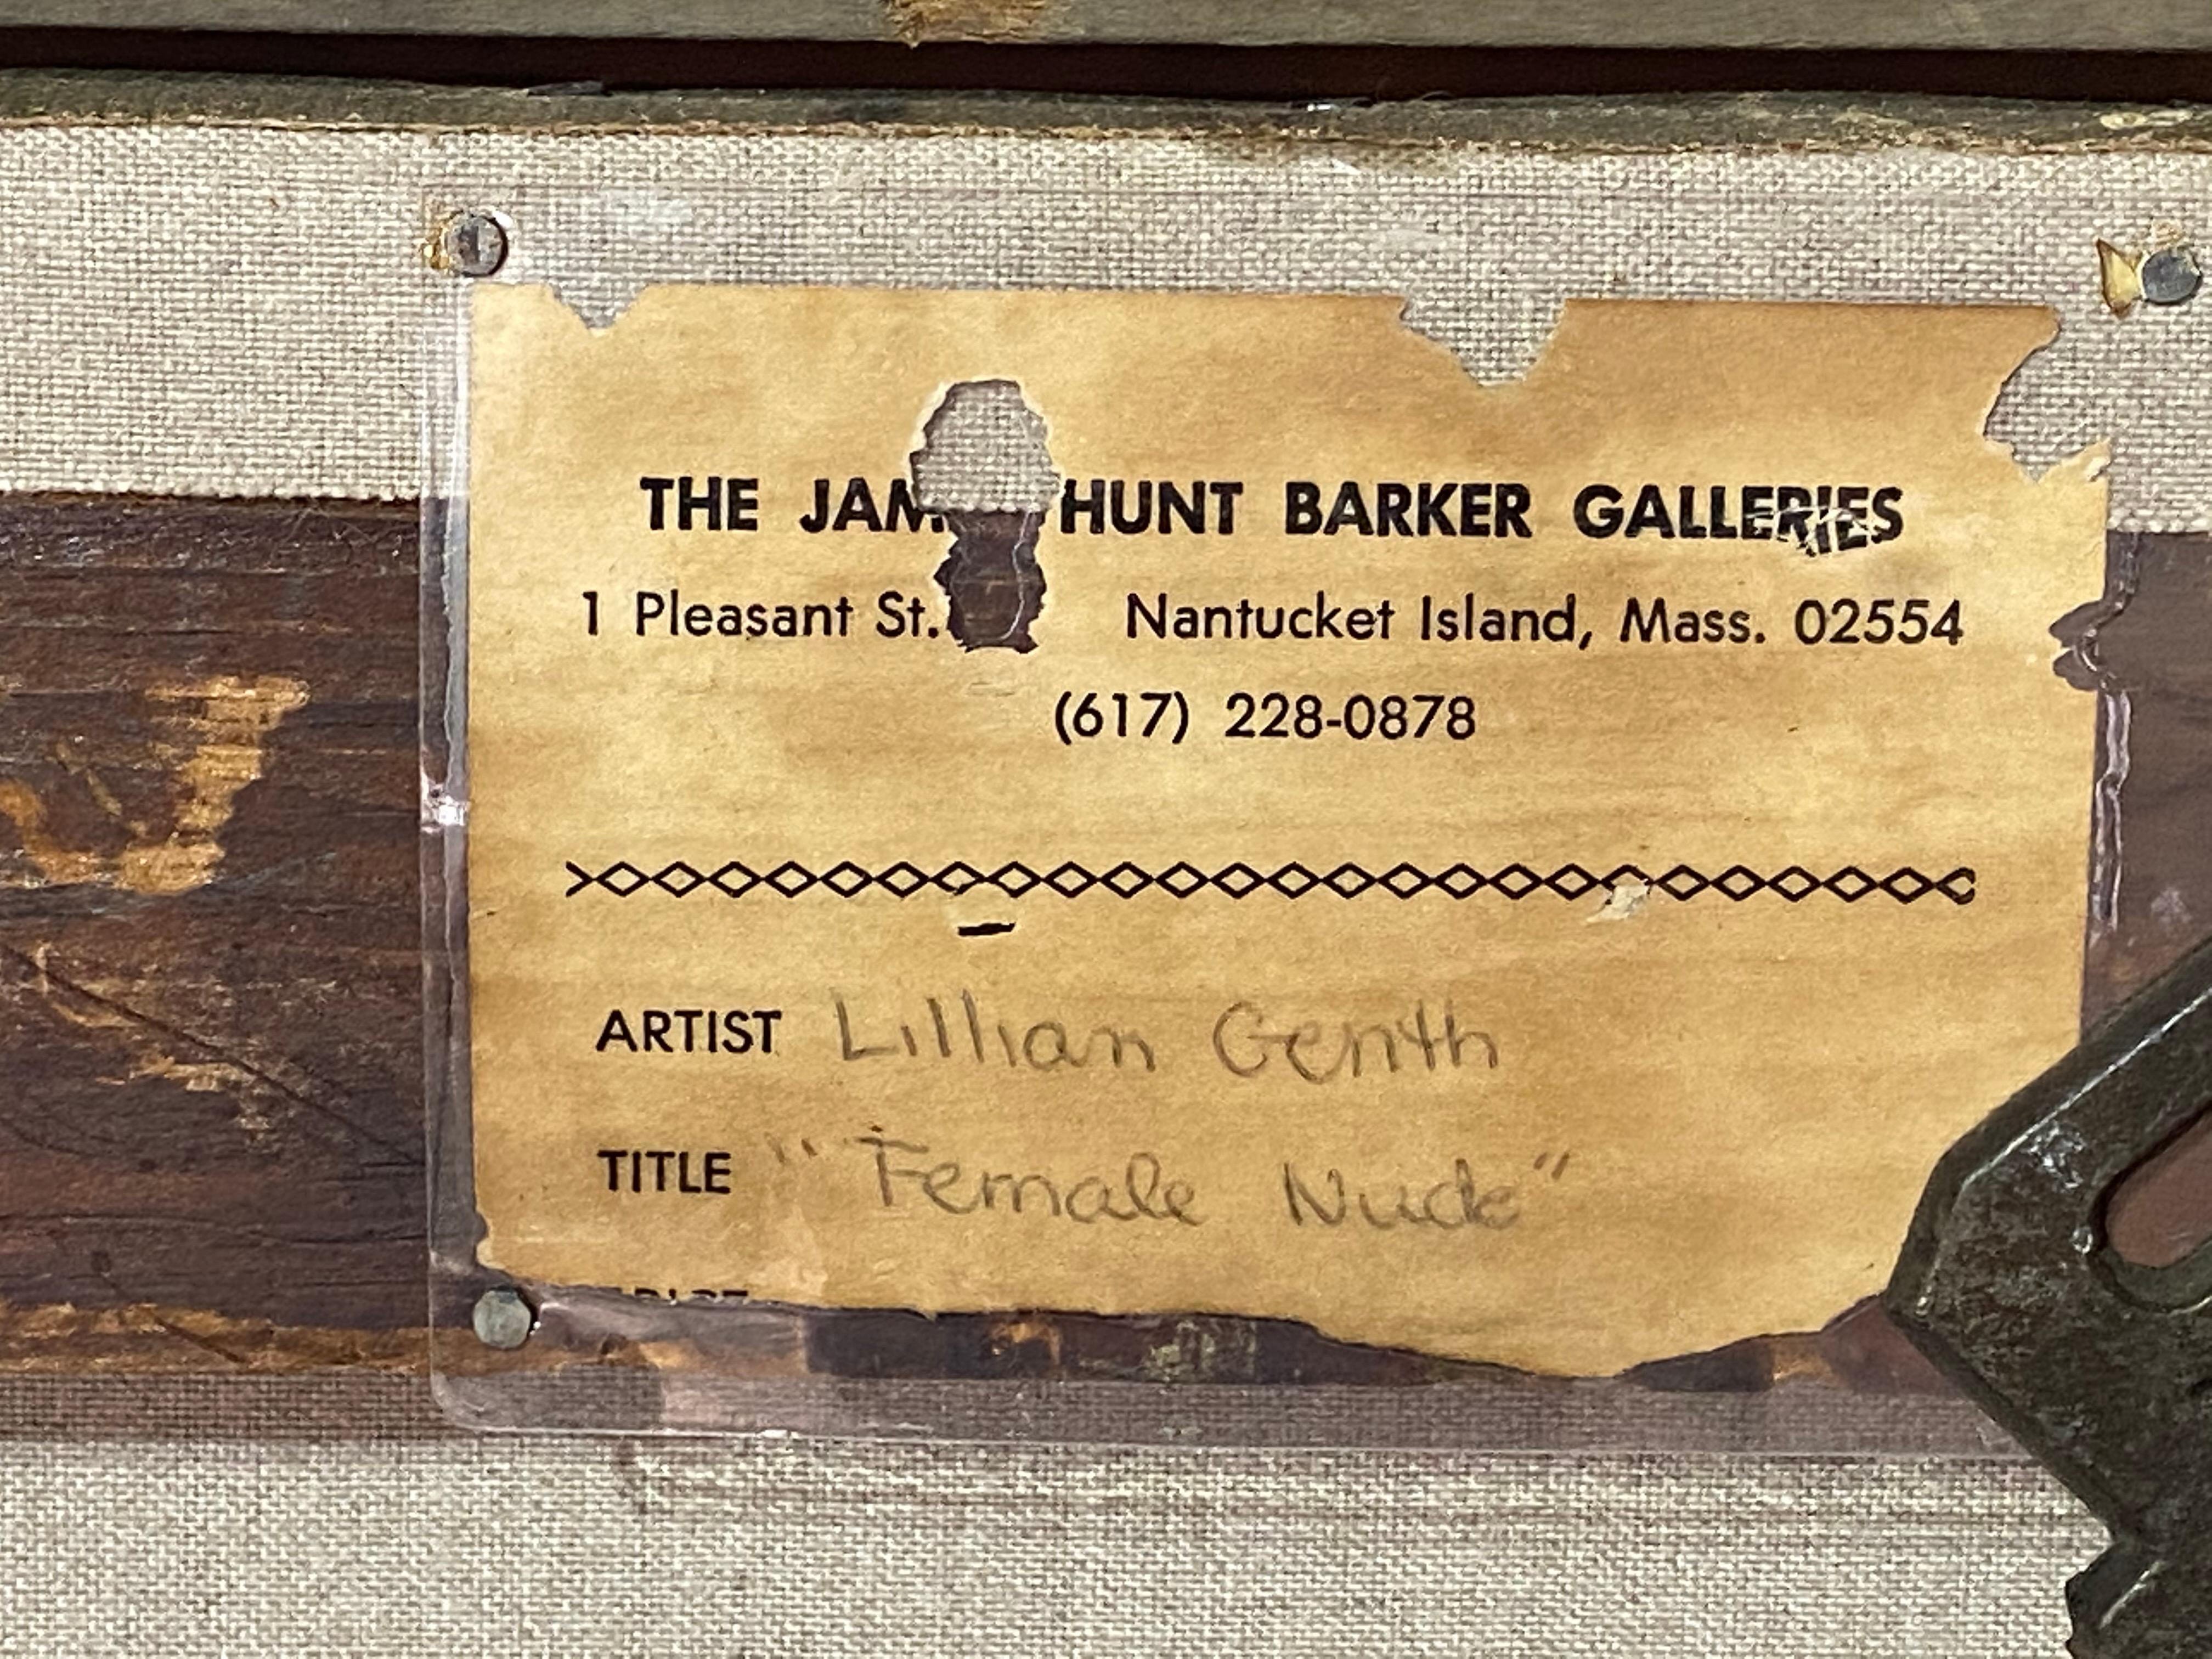 THE JAM HUNT BARKER GALLERIES
1 Pleasant St. Nantucket Island, Mass. 02554
(617) 228-0878
ARTIST Lillian Genth
TITLE "Female Nude"